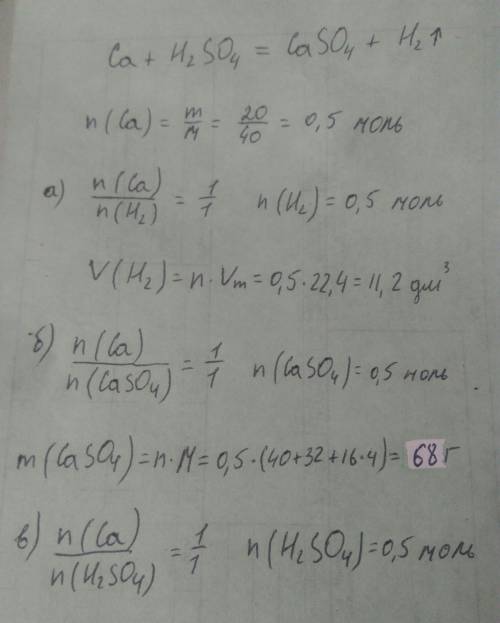 Ca + H₂SO₄ = CaSO₄ + H₂↑
n(Ca) = m/M = 20/40 = 0,5 моль
а) n(Ca)/n(H₂) = 1/1 n(H₂) = 0,5 моль
V(H₂) = n·Vm = 0,5·22,4 = 11,2 дм³
б) n(Ca)/n(CaSO₄) = 1/1 n(CaSO₄) = 0,5 моль
m(CaSO₄) = n·M = 0,5·(40+32+16·4) = 68 г
в) n(Ca)/n(H₂SO₄) = 1/1 n(H₂SO₄) = 0,5 моль